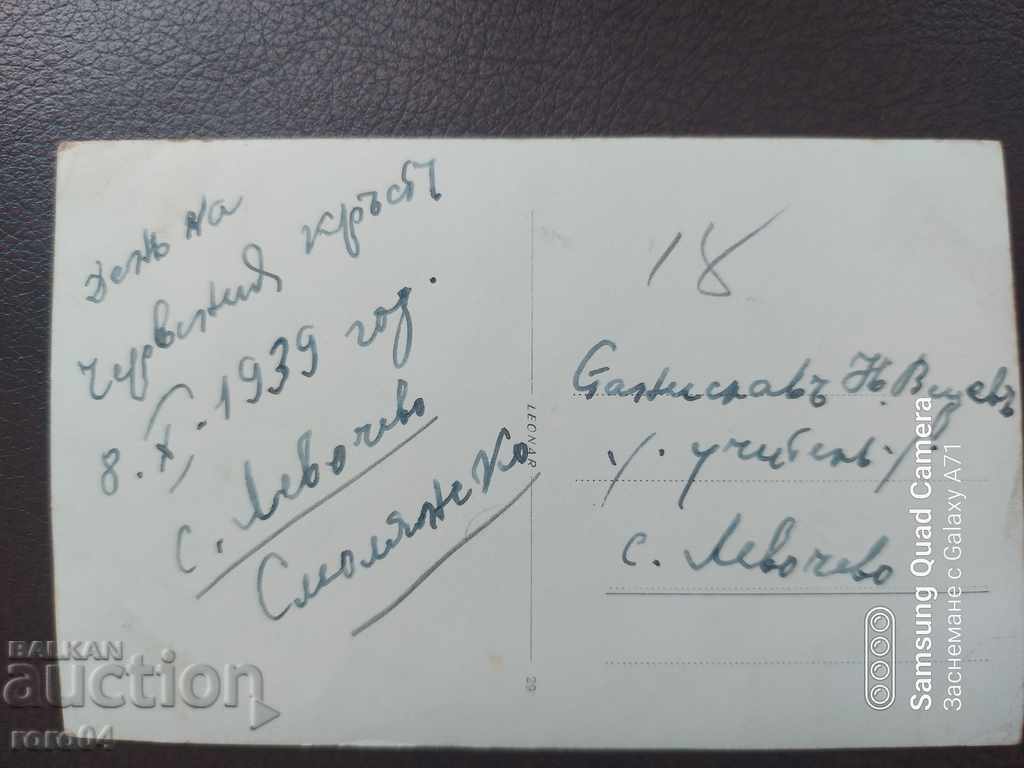 день на
червения кръстъ
8. X. 1939 год.
с. Левочево
Смолянско
18
Станиславъ Н.
учитель
с. Левочево
LEONAR
29
BALKAN
auction
roro04
Samsung Quad Camera
Заснемане с Galaxy A71